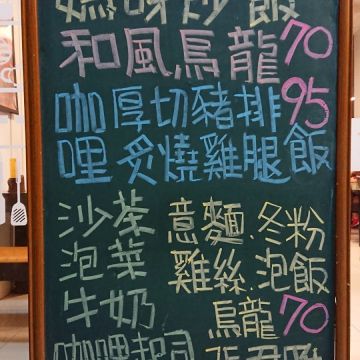 炒飯
和風烏龍 70
咖厚切豬排 95
哩炙燒雞腿飯
沙茶 意麵、冬粉
泡菜 雞絲、泡飯
牛奶 烏龍 70
咖哩起司